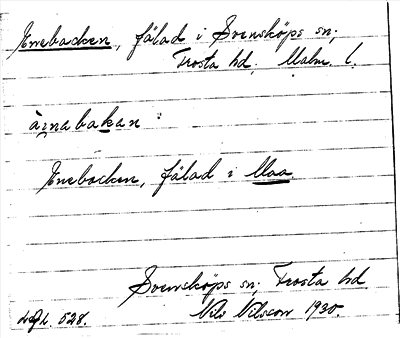 Enebacken, fälad i Svensköps sn;
Frosta hd; Malm. l.
ä̀ɪnabakan :
Enebacken, fälad i Maa.
Svensköps sn; Frosta hd.
528. Nils Nilsson 1930.